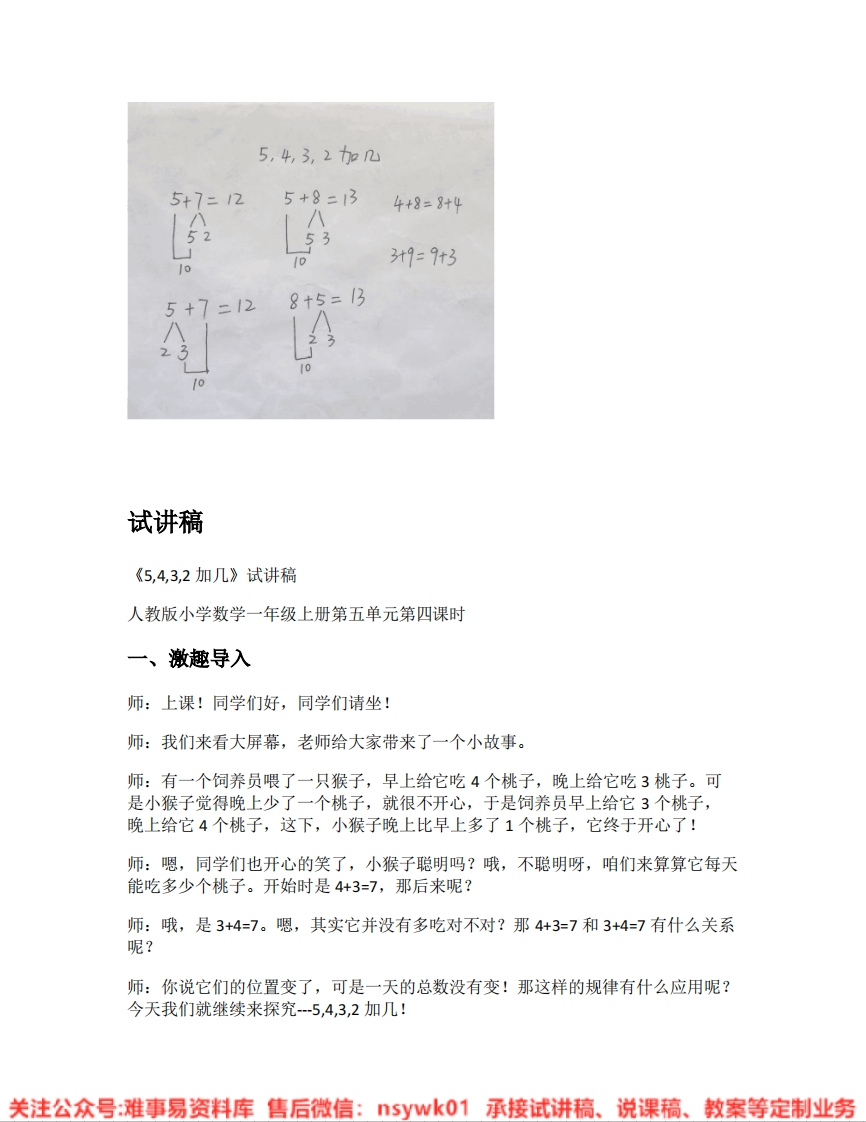 5,4,3,2加几
5+7=12 5+8=13 4+8=8+4
5 2 5 3
10 10
3+9=9+3
5+7=12 8+5=13
2 3 2 3
10 10
试讲稿
《5,4,3,2 加几》试讲稿
人教版小学数学一年级上册第五单元第四课时
一、激趣导入
师：上课！同学们好，同学们请坐！
师：我们来看大屏幕，老师给大家带来了一个小故事。
师：有一个饲养员喂了一只猴子，早上给它吃 4 个桃子，晚上给它吃 3 桃子。可
是小猴子觉得晚上少了一个桃子，就很不开心，于是饲养员早上给它 3 个桃子，
晚上给它 4 个桃子，这下，小猴子晚上比早上多了 1 个桃子，它终于开心了！
师：嗯，同学们也开心的笑了，小猴子聪明吗？哦，不聪明呀，咱们来算算它每天
能吃多少个桃子。开始时是 4+3=7，那后来呢？
师：哦，是 3+4=7。嗯，其实它并没有多吃对不对？那 4+3=7 和 3+4=7 有什么关系
呢？
师：你说它们的位置变了，可是一天的总数没有变！那这样的规律有什么应用呢？
今天我们就继续来探究---5,4,3,2 加几！
关注公众号:难事易资料库 售后微信：nsywk01 承接试讲稿、说课稿、教案等定制业务